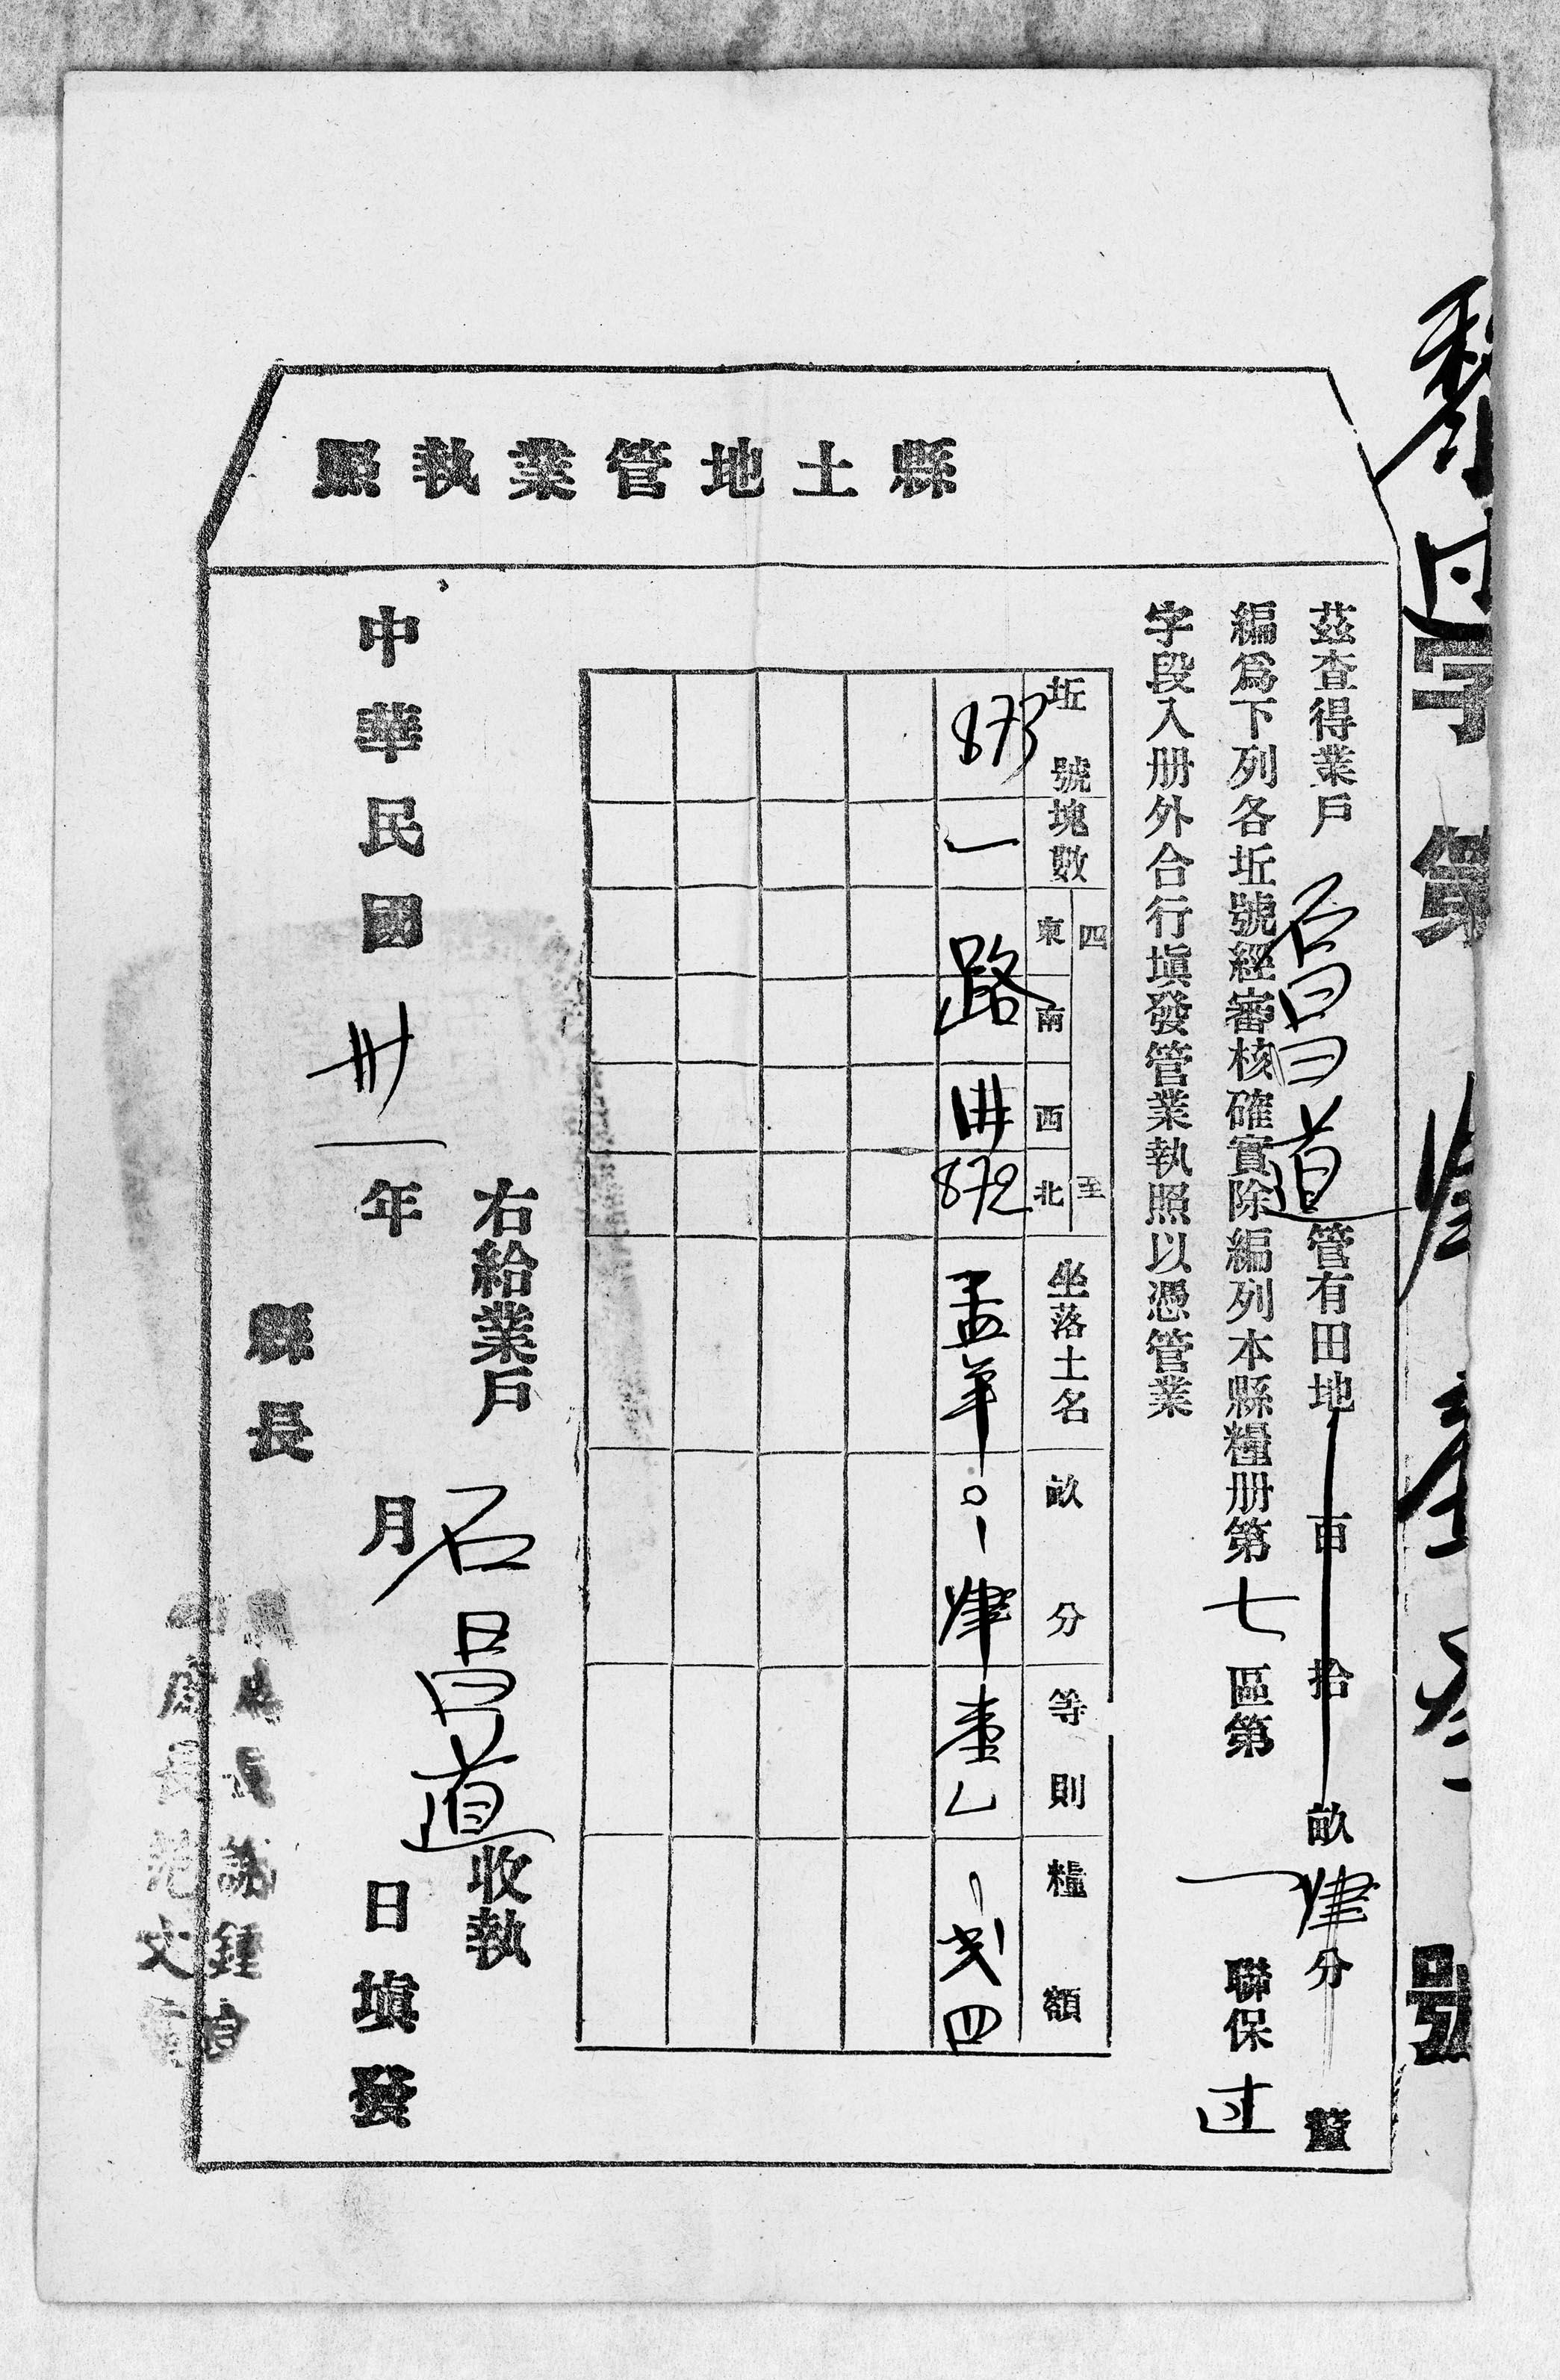 縣土地管業執照
字第 號
茲查得業戶石昌道管有田地 百 拾 畝肆分 釐
編為下列各坵號經審核確實除編列本縣糧册第七區第一聯保过
字段入册外合行塡發管業執照以憑管業
坵號 塊數 四至 東 南 西 北 坐落土名 畝分 等則 糧額
873 一 路 872 孟 〇 肆 壹 弍四
右給業戶石昌道收執
中華民國卅一年 月 日塡發
縣長